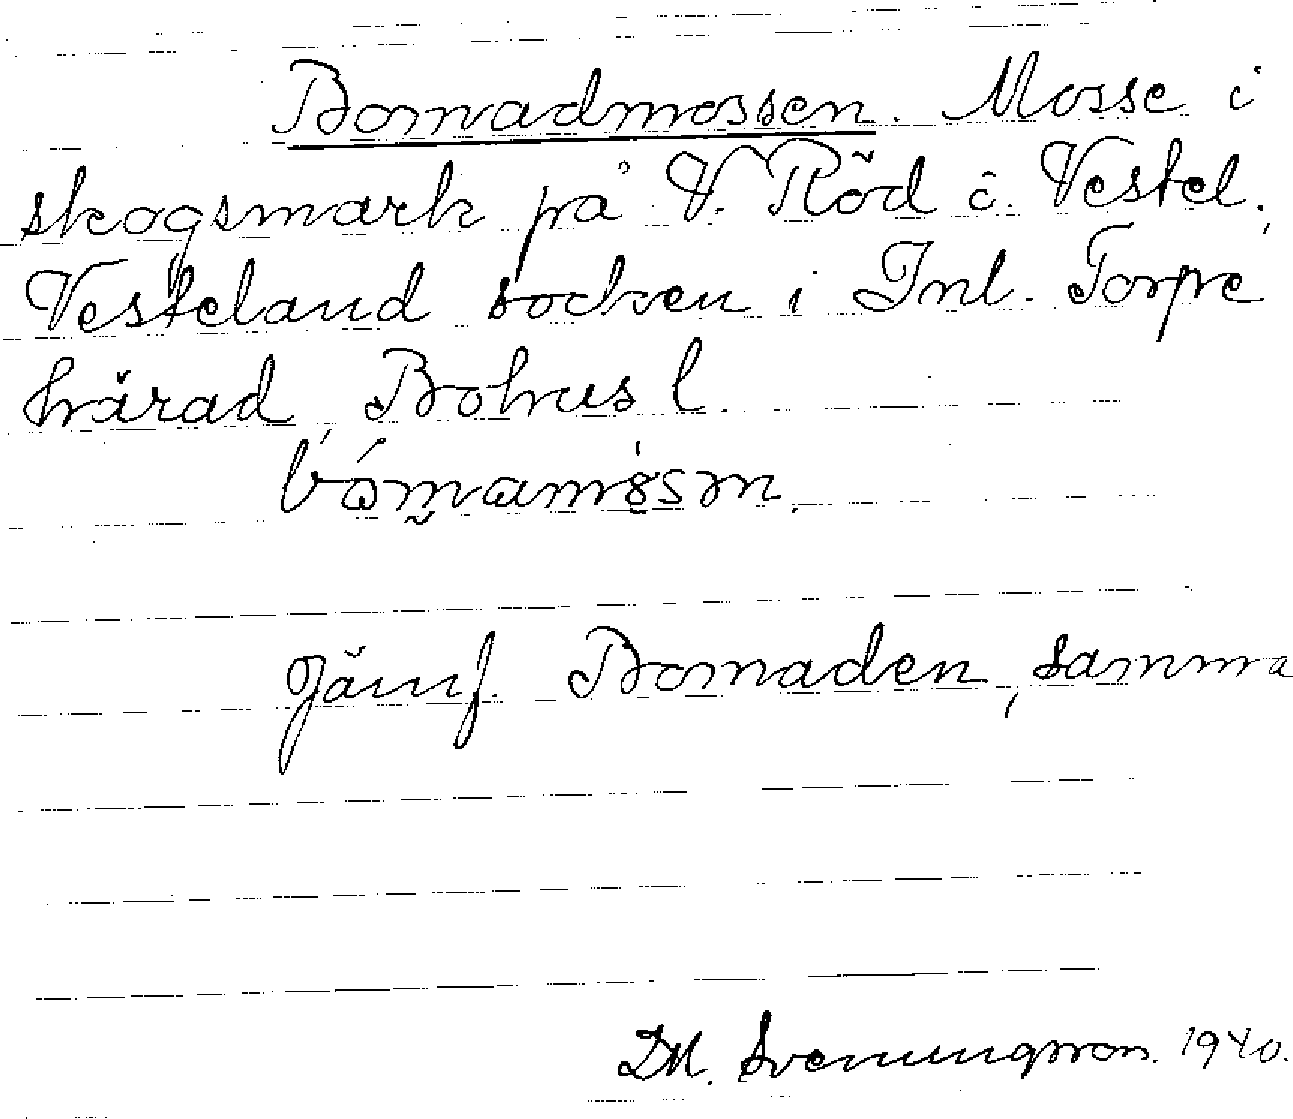 Bomadmossen. Mosse i
skogsmark på V. Röd i Vestel.,
Vesteland socken i Inl. Torpe
härad, Bohus l.
Jämf. Bomaden, samma
D.M. Svenungsson. 1940.